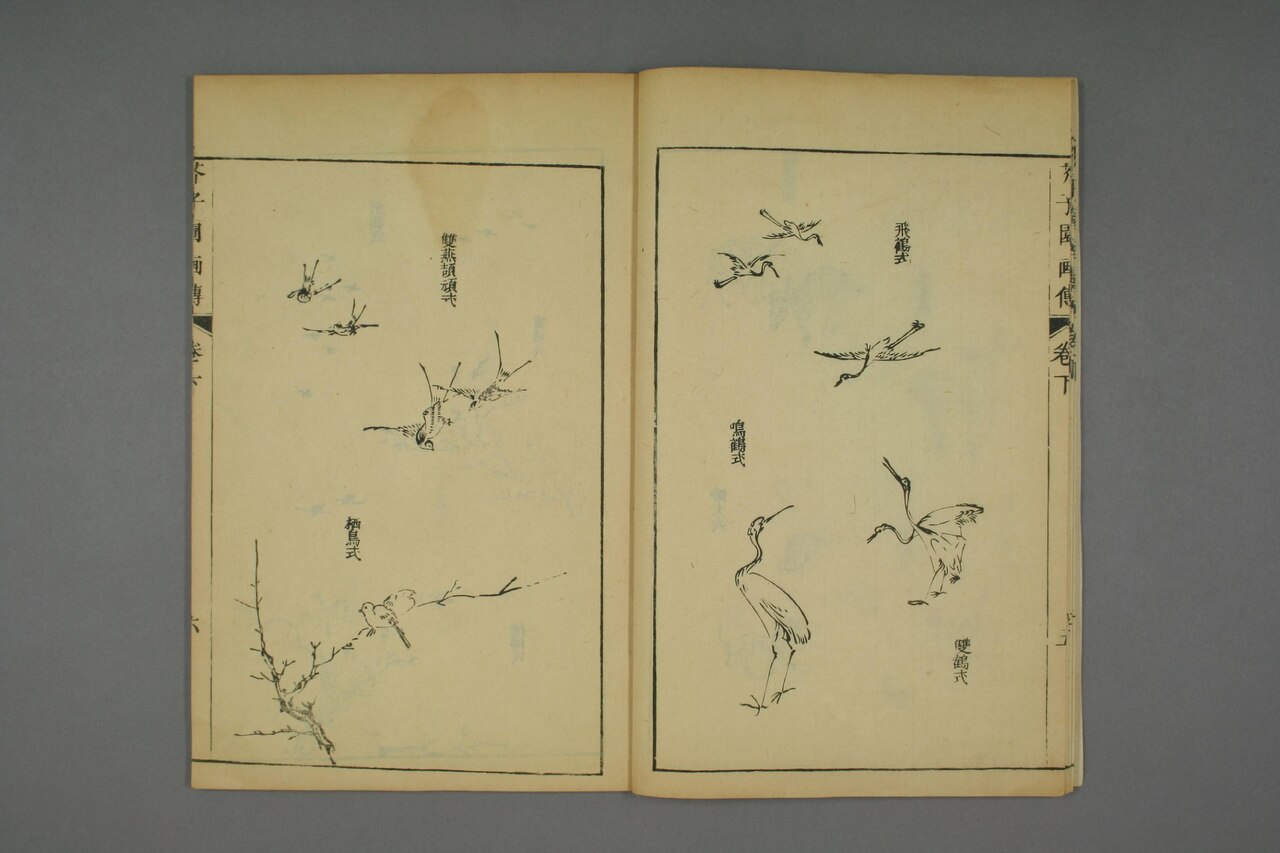 芥子園画傳
卷下
飛鶴式
鳴鶴式
雙鶴式
芥子園画傳
雙燕頡頏式
栖鳥式
六